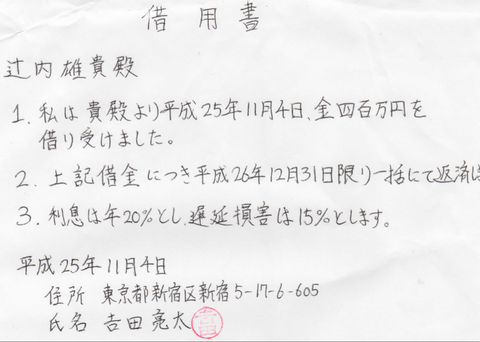 借用書
辻内雄貴殿
1. 私は貴殿より平成25年11月4日、金四百万円を
借り受けました。
2. 上記借金につき平成26年12月31日限り一括にて返済
3. 利息は年20%とし、遅延損害は15%とします。
平成25年11月4日
住所 東京都新宿区新宿5-17-6-605
氏名 吉田亮太